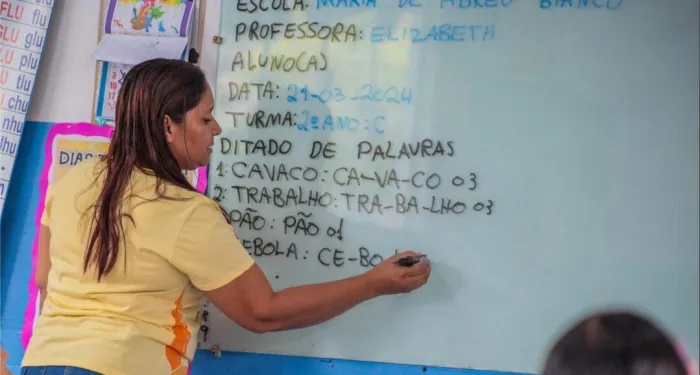 ESCOLA: MARIA DE ABREU BIANCO
PROFESSORA: ELIZABETH
ALUNO(A)
DATA: 21-03-2024
TURMA: 2º ANO: C
DITADO DE PALAVRAS
1: CAVACO: CA-VA-CO 03
2: TRABALHO: TRA-BA-LHO 03
PÃO: PÃO 01
EBOLA: CE-BO-
DIAS
FLU flu
GLU glu
PLU plu
TLU tlu
CHU chu
nhu
lhu